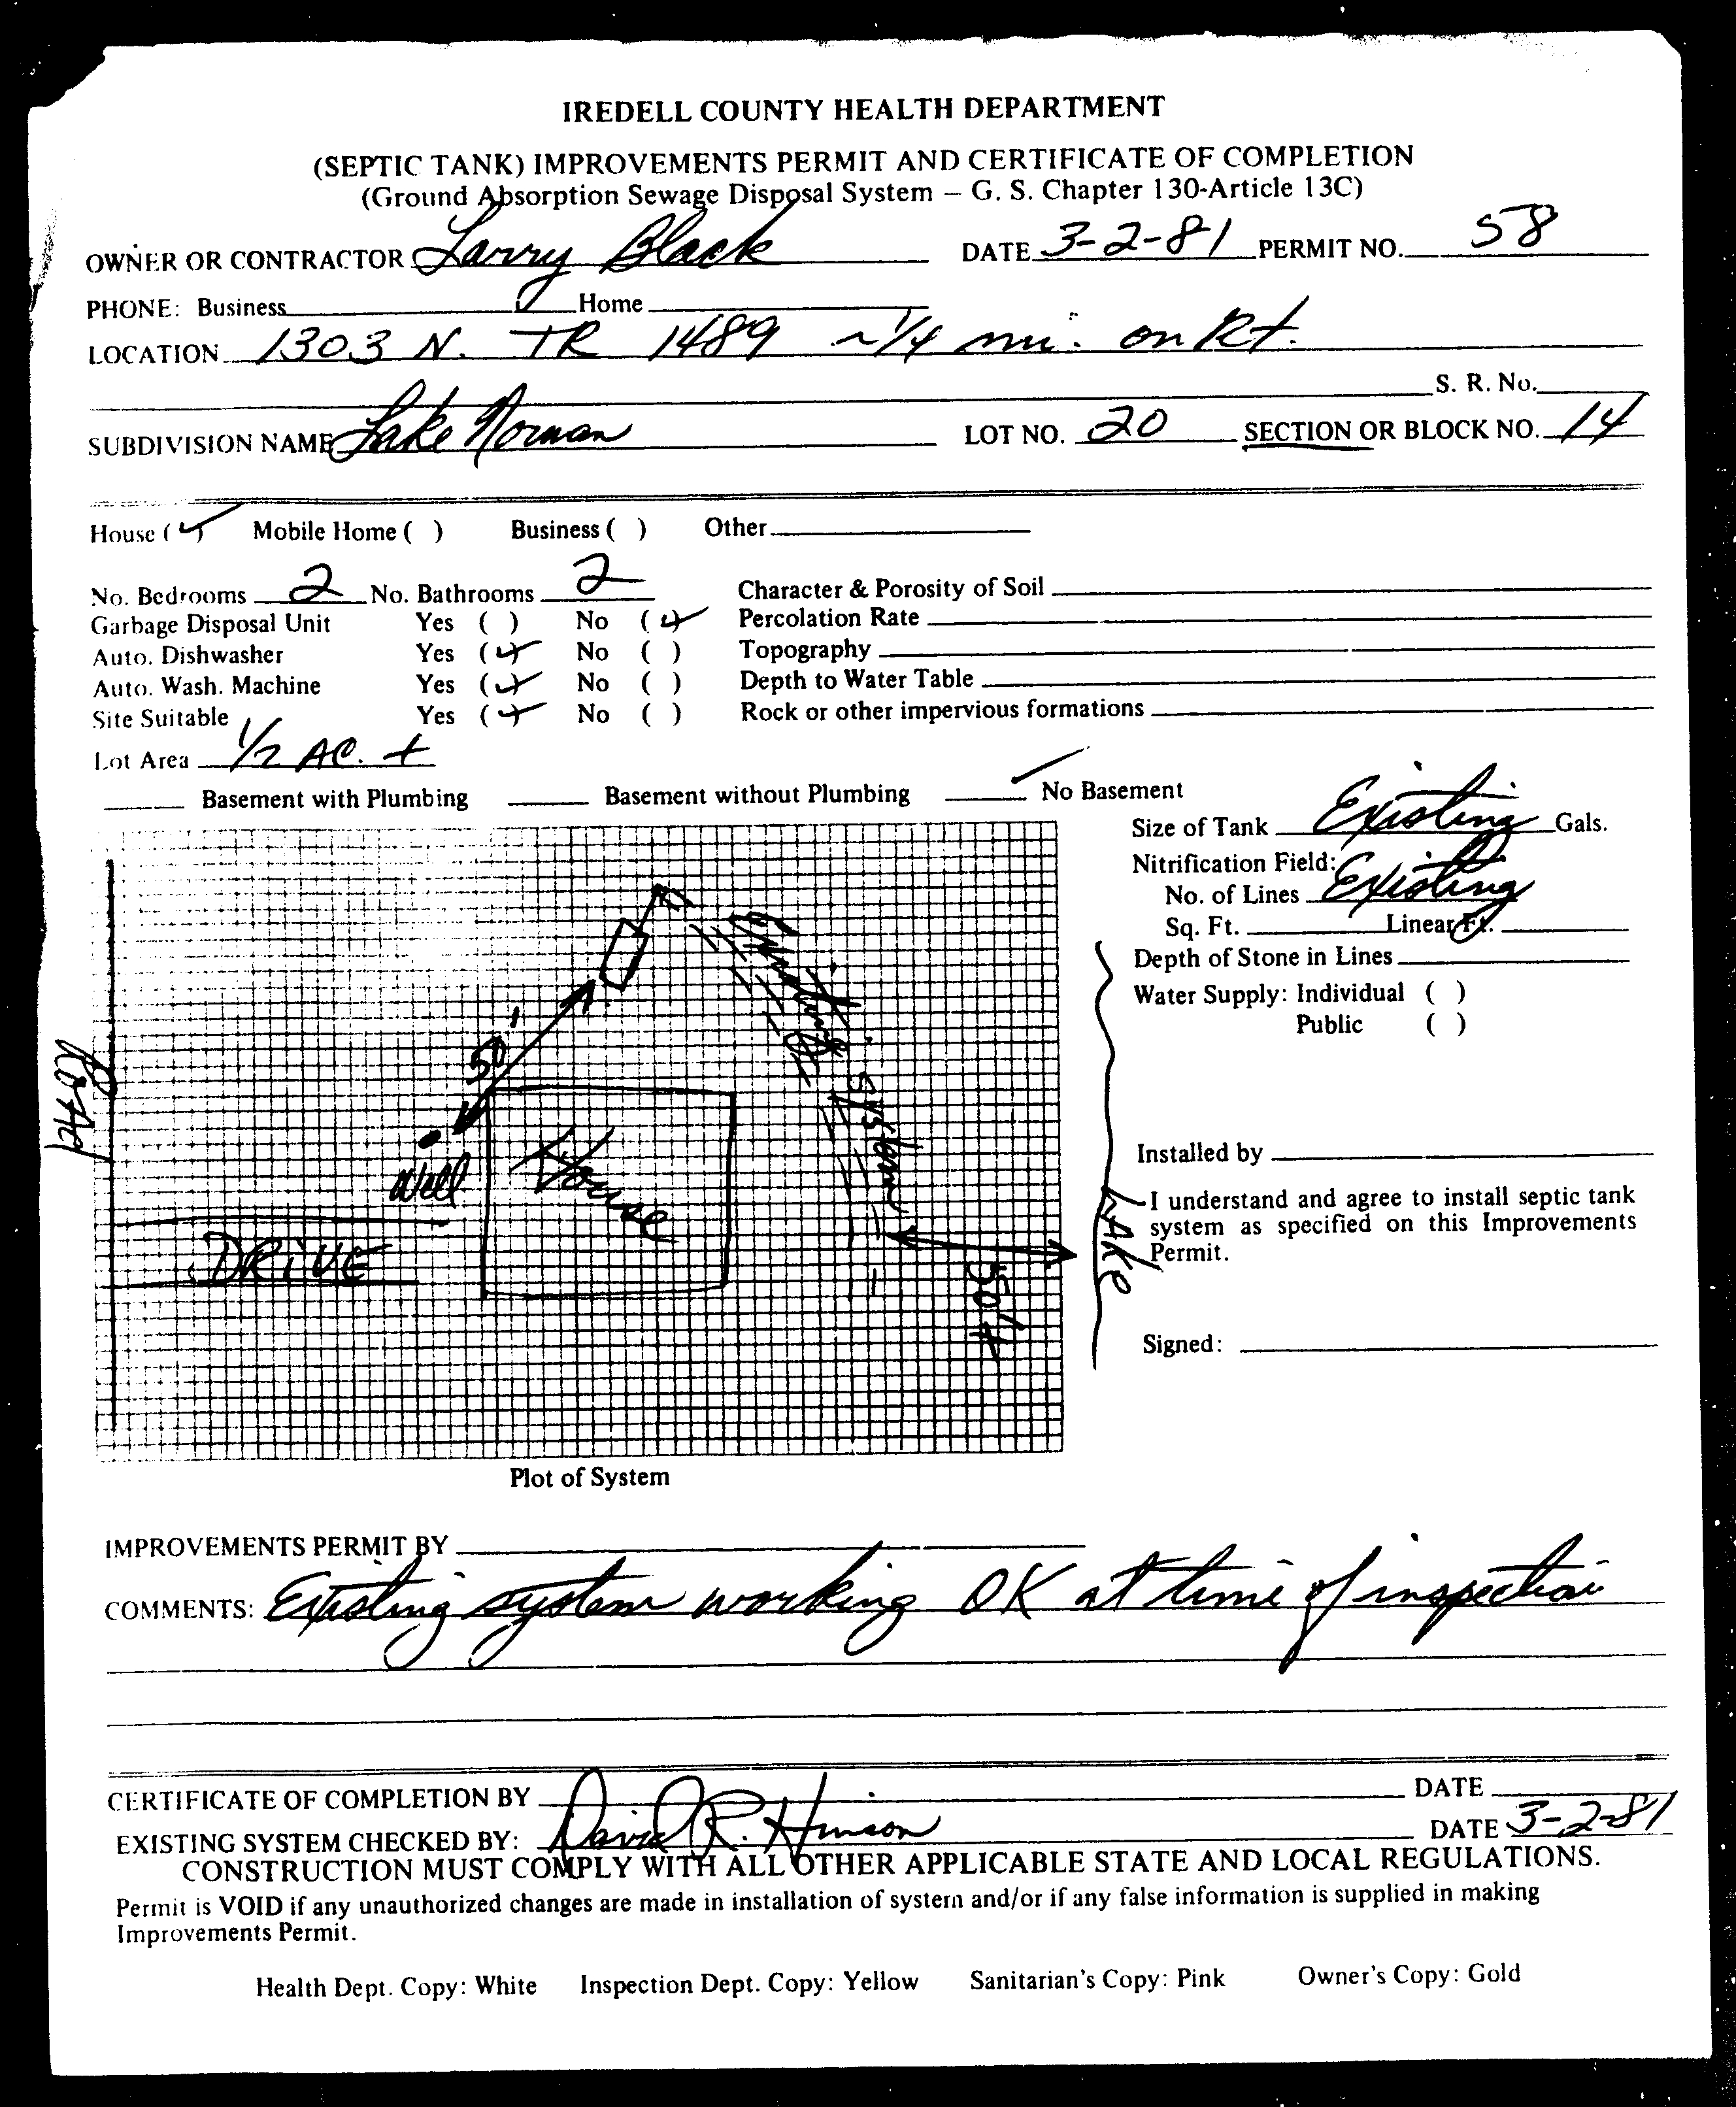 IREDELL COUNTY HEALTH DEPARTMENT
(SEPTIC TANK) IMPROVEMENTS PERMIT AND CERTIFICATE OF COMPLETION
(Ground Absorption Sewage Disposal System – G. S. Chapter 130-Article 13C)
OWNER OR CONTRACTOR Larry Black DATE 3-2-81 PERMIT NO. 58
PHONE: Business Home
LOCATION 1303 N. TR 1489 ~1/4 mi. on Rt.
S. R. No.
SUBDIVISION NAME Lake Norman LOT NO. 20 SECTION OR BLOCK NO. 14
House (✓) Mobile Home ( ) Business ( ) Other
No. Bedrooms 2 No. Bathrooms 2 Character & Porosity of Soil
Garbage Disposal Unit Yes ( ) No (✓) Percolation Rate
Auto. Dishwasher Yes (✓) No ( ) Topography
Auto. Wash. Machine Yes (✓) No ( ) Depth to Water Table
Site Suitable Yes (✓) No ( ) Rock or other impervious formations
Lot Area 1/2 AC. +
Basement with Plumbing Basement without Plumbing ✓ No Basement
Size of Tank Existing Gals.
Nitrification Field:
No. of Lines Existing
Sq. Ft. Linear Ft.
Depth of Stone in Lines
Water Supply: Individual ( )
Public ( )
Road
50'
Well
House
DRIVE
Existing system
50'+
Lake
Installed by
I understand and agree to install septic tank
system as specified on this Improvements
Permit.
Signed:
Plot of System
IMPROVEMENTS PERMIT BY
COMMENTS: Existing system working OK at time of inspection
CERTIFICATE OF COMPLETION BY DATE
EXISTING SYSTEM CHECKED BY: David R. Hinson DATE 3-2-81
CONSTRUCTION MUST COMPLY WITH ALL OTHER APPLICABLE STATE AND LOCAL REGULATIONS.
Permit is VOID if any unauthorized changes are made in installation of system and/or if any false information is supplied in making
Improvements Permit.
Health Dept. Copy: White Inspection Dept. Copy: Yellow Sanitarian's Copy: Pink Owner's Copy: Gold